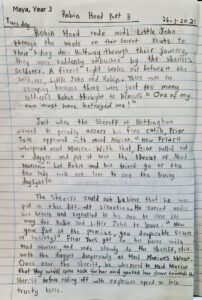 Maya, Year 3
Robin Hood part 3
Tuesday 26.1.2021
Robin Hood rode with Little John
through the woods on their secret route to
their hiding den. Halfway through their journey,
they were suddenly ambushed by the Sheriff's
Soldiers. A fierce fight broke out between the
soldiers, Little John and Robin. There was no
escaping because there were just too many
soldiers. Robin thought to himself "One of my
own must have betrayed me!"
Just when the Sheriff of Nottingham
arrived to proudly his catch, Friar
Tuck appeared with Maid Marion. "New Friar"
whispered Maid Marion. With that, Friar pulled out
a dagger and put it near the throat of Maid
Marion. "Let Robin and his friend go or this
the lady will not live to see the living
daylight!"
The Sheriff could not believe that he was
put in this difficult situation. He waved
his hands and signalled to his men to clear the
way for Robin and Little John to leave. "Now
your part of the promise, you despicable
of society!" Friar Tuck got on his horse with
Maid Marion and rode slowly to the Sheriff, still
with the dagger dangerously at Maid Marion's throat.
Once near the Sheriff, he whispered to Maid Marion
that they would come back for her and pushed her down towards the
Sheriff before riding off with explosive speed on his
trusty horse.